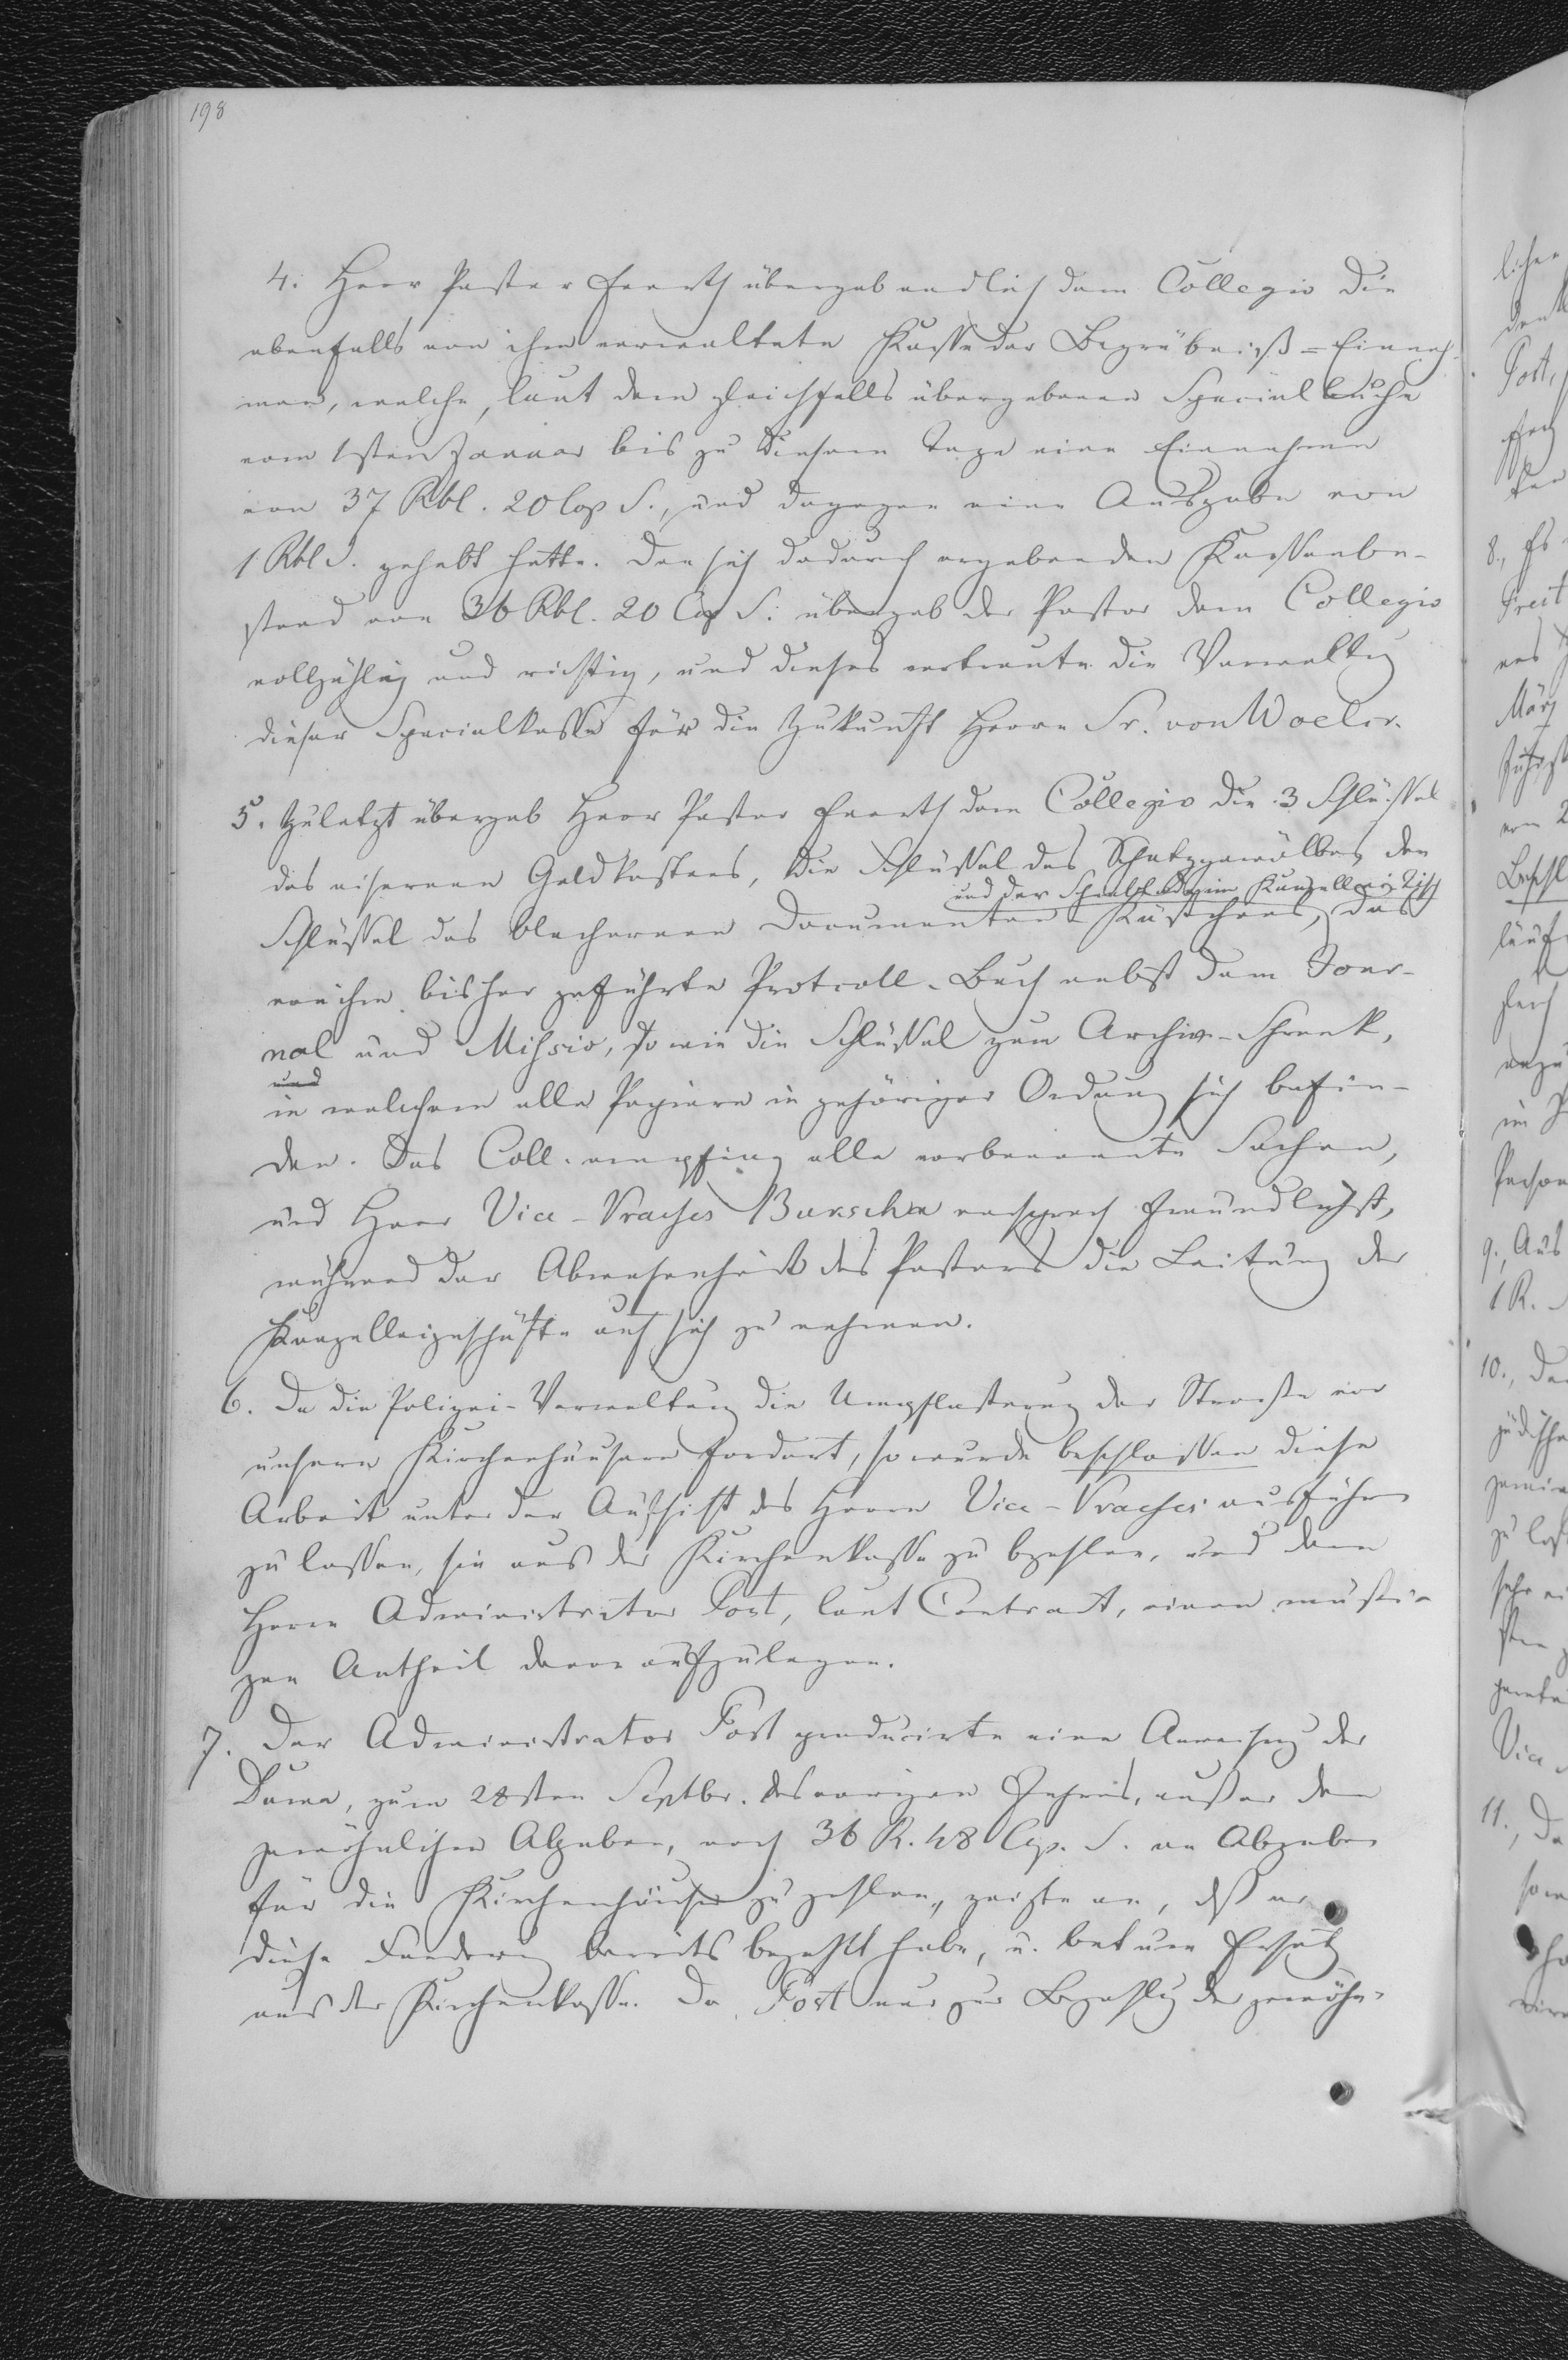 198
4. Herr Pastor Everth übergab endlich dem Collegio die
ebenfalls von ihm verwaltete Kasse der Begräbniß-Einnah-
men, welche, laut dem gleichfalls übergebenen Specialbuche
vom 1sten Januar bis zu diesem Tage eine Einnahme
von 37 Rbl. 20 Cop S., und dagegen eine Ausgabe von
1 Rbl S. gehabt hatte. Den sich dadurch ergebenden Kassenbe-
stand von 36 Rbl. 20 Cop S. übergab der Pastor dem Collegio
vollzählig und richtig, und dieses vertraute die Verwaltung
dieser Specialkasse für die Zukunft Herrn Sr. von Woeler.
5. Zuletzt übergab Herr Pastor Everth dem Collegio die 3 Schlüssel
des eisernen Geldkastens, die Schlüssel des Schatzgewölbes, den
und der im Kanzellei-Tisch
Schlüssel des blechernen Documenten Kästchens, das
von ihm bisher geführte Protcoll-Buch nebst dem Jour-
nal und Missiv, so wie die Schlüssel zum Archiv-Schrank,
und
in welchem alle Papiere in gehöriger Ordnung sich befin-
den. Das Coll. empfing alle vorbenannte Sachen,
und Herr Vice-Praeses versprach freundlichst,
während der Abwesenheit des Pastors die Leitung der
Kanzelleigeschäfte auf sich zu nehmen.
6. Da die Polizei-Verwaltung die Umpflasterung der Strasse vor
unsern Kirchenhäusern fordert, so wurde beschlossen diese
Arbeit unter der Aufsicht des Herrn Vice-Praeses ausführen
zu lassen, sie aus der Kirchenkasse zu bezahlen, und dem
Herrn Administrator Post, laut Contract, einen mässi-
gen Antheil davon aufzulegen.
7. Der Administrator Post producirte eine Anweisung der
Duma, zum 28sten Septbr. des vorigen Jahres, außer den
gewöhnlichen Abgaben, noch 36 R. 48 Cop. S. an Abgaben
für die Kirchenhäuser zu zahlen, zeigte an, daß er
diese Forderung bereits bezahlt habe, u. bat um Ersatz
aus der Kirchenkasse. Da Post nur zur Bezahlung der gewöhn-